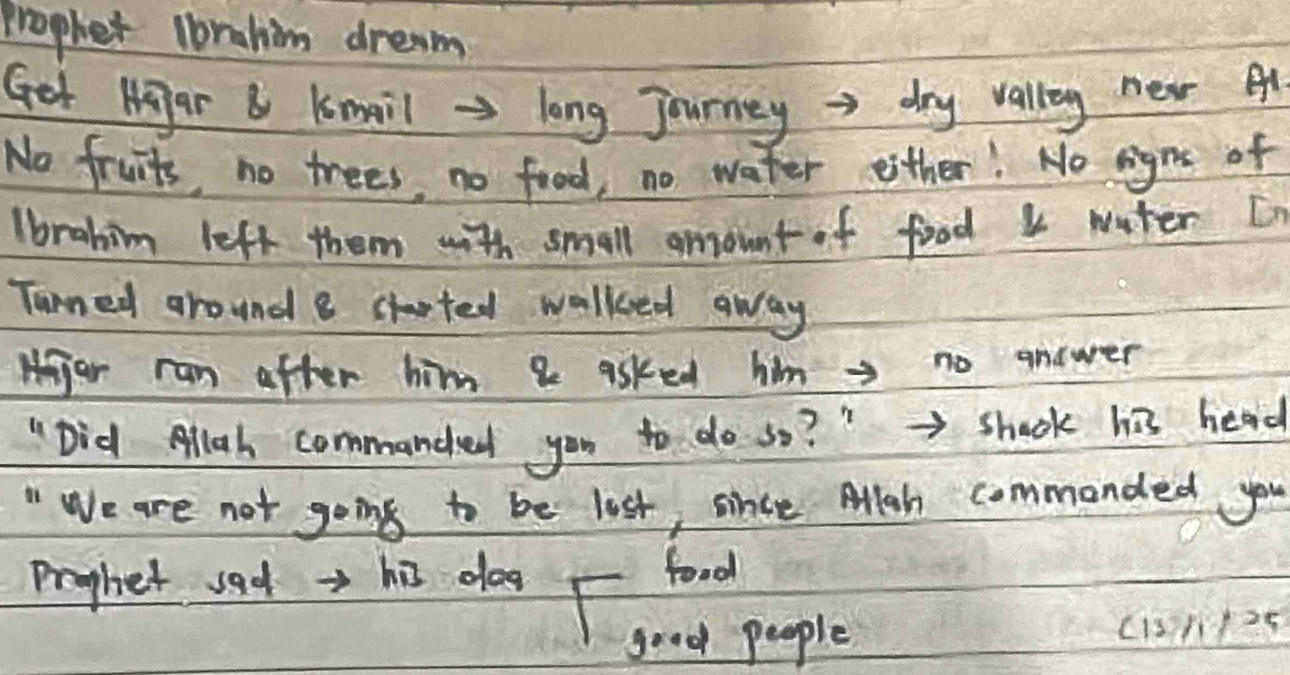 Prophet Ibrahim dream
Get Hajar & Ismail → long journey → dry valley near Al-
No fruits, no trees, no food, no water either! No signs of
Ibrahim left them with small amount of food & water
Turned around & started walked away
Hajar ran after him & asked him → no answer
"Did Allah commanded you to do so?" → shook his head
"We are not going to be lost, since Allah commanded you
Prophet sad → his doa food
good people